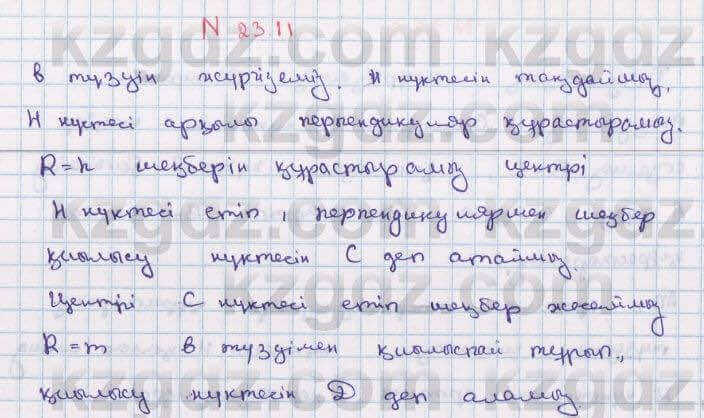 N 23.11
в түзуін жүргіземіз. H нүктесін таңдаймыз,
H нүктесі арқылы перпендикуляр құрастырамыз.
R=h шеңберін құрастырамыз центрі
H нүктесі етіп, перпендикулярмен шеңбер
қиылысу нүктесін C деп атаймыз.
Центрі C нүктесі етіп шеңбер жасаймыз
R=m в түзуімен қиылыспай тұрып,
қиылысу нүктесін D деп аламыз.